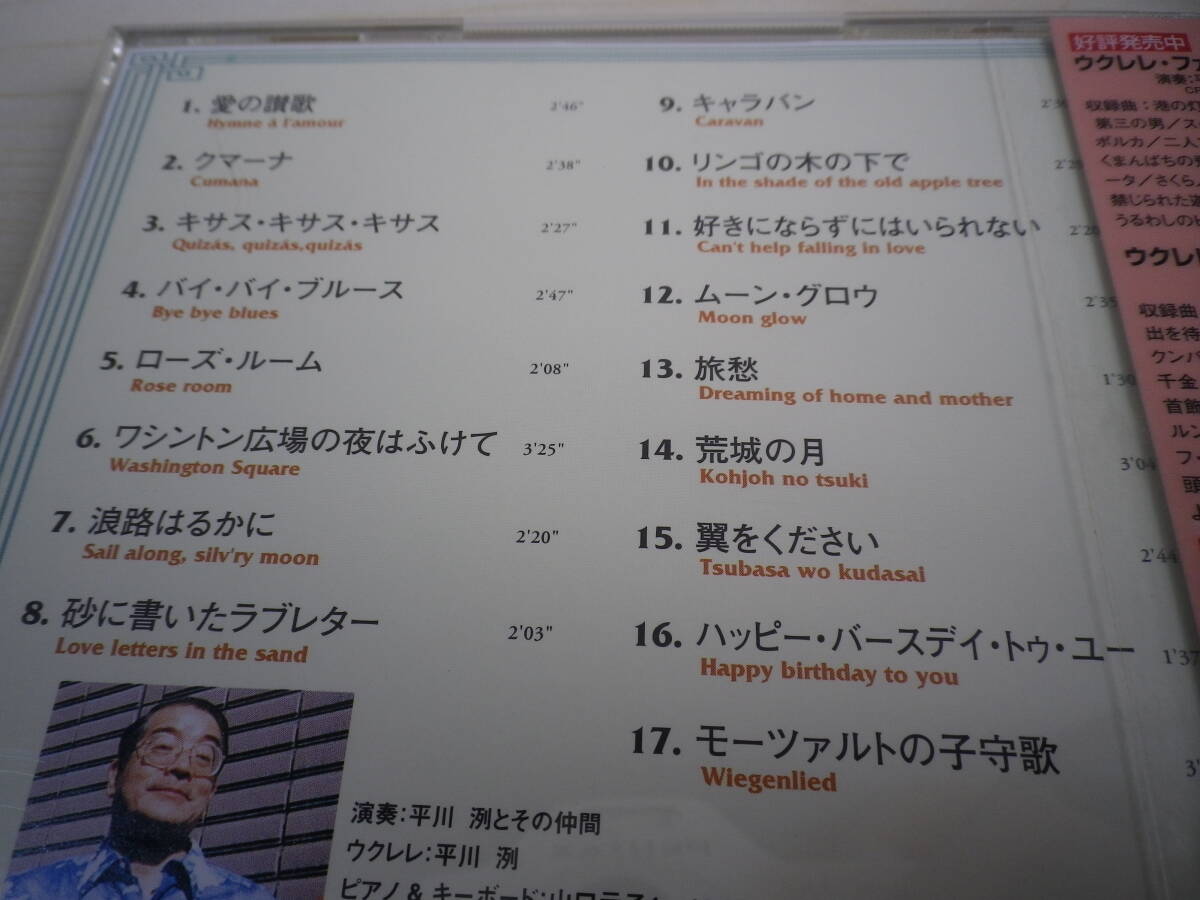 1. 愛の讃歌 2'46"
Hymne à l'amour
2. クマーナ 2'38"
Cumana
3. キサス・キサス・キサス 2'27"
Quizás, quizás,quizás
4. バイ・バイ・ブルース 2'47"
Bye bye blues
5. ローズ・ルーム 2'08"
Rose room
6. ワシントン広場の夜はふけて 3'25"
Washington Square
7. 浪路はるかに 2'20"
Sail along, silv'ry moon
8. 砂に書いたラブレター 2'03"
Love letters in the sand
9. キャラバン
Caravan
10. リンゴの木の下で
In the shade of the old apple tree
11. 好きにならずにはいられない
Can't help falling in love
12. ムーン・グロウ 2'35
Moon glow
13. 旅愁 1'30
Dreaming of home and mother
14. 荒城の月 3'04
Kohjoh no tsuki
15. 翼をください 2'44
Tsubasa wo kudasai
16. ハッピー・バースデイ・トゥ・ユー 1'37
Happy birthday to you
17. モーツァルトの子守歌 3'
Wiegenlied
演奏:平川 洌とその仲間
ウクレレ:平川 洌
ピアノ & キーボード:山口
好評発売中
ウクレレ・フ
演奏:
収録曲:港の灯
第三の男/ス
ポルカ/二人
くまんばちの
ータ/さくら
禁じられた遊
うるわしの
ウクレレ
収録曲
出を待
クンパ
千金
首飾
ルン
フ・
頭
よ